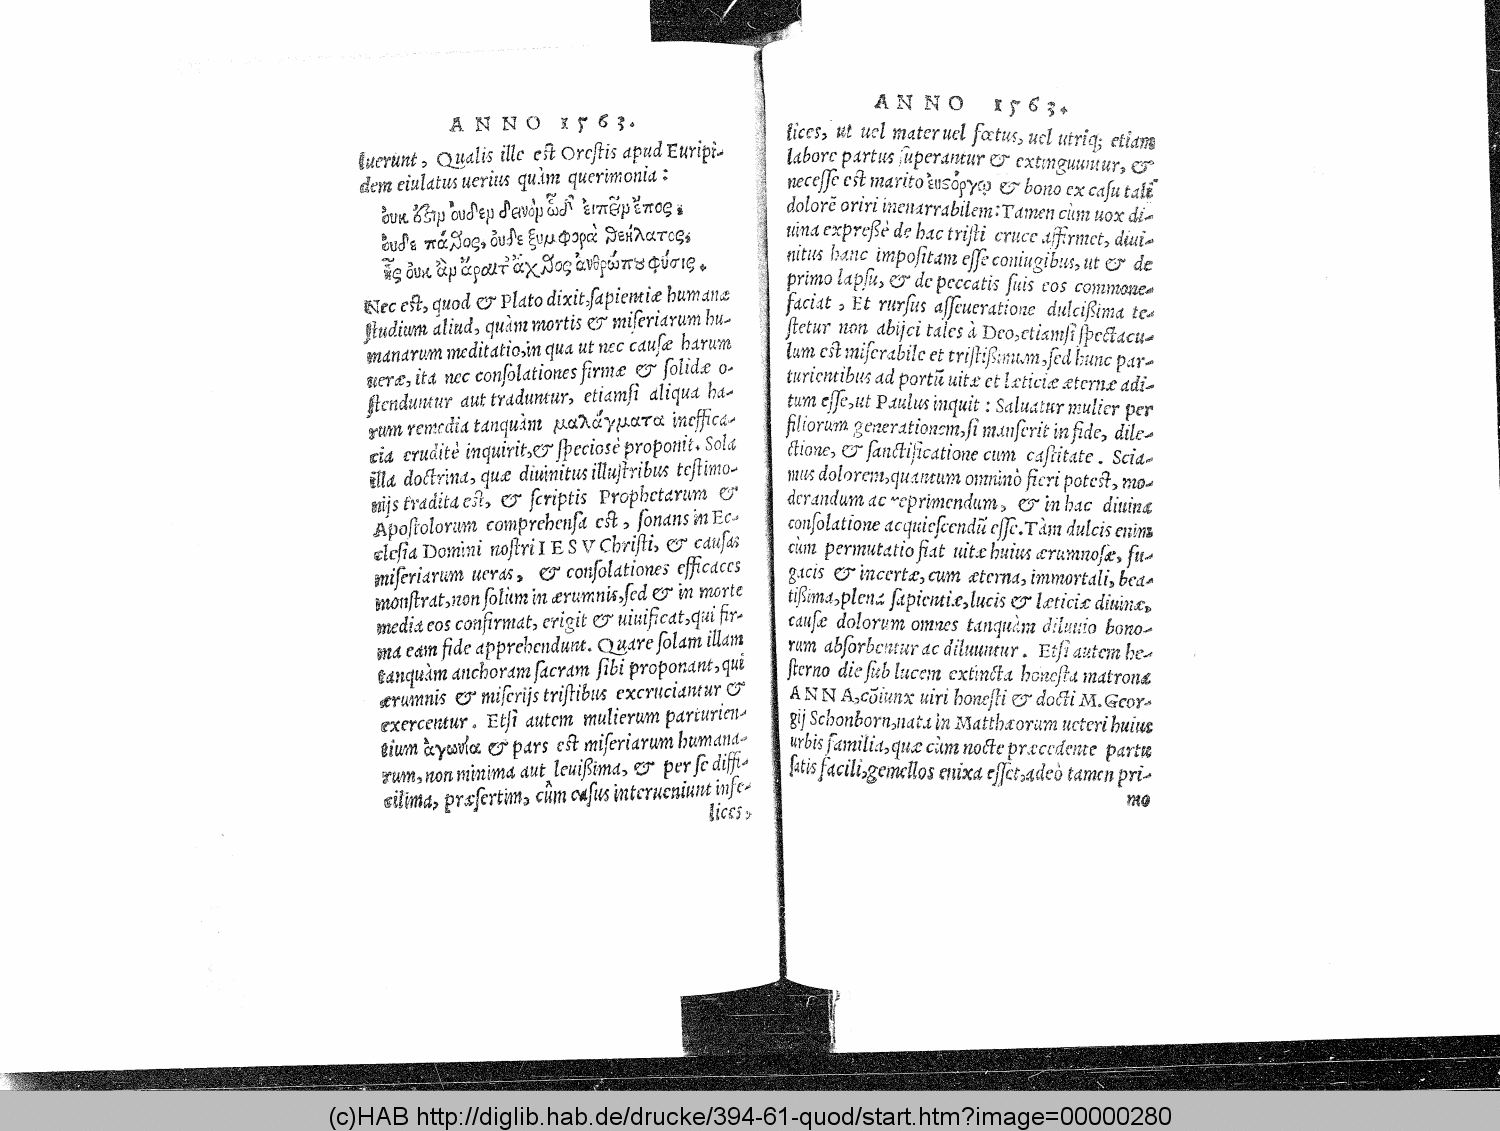 ANNO 1563.
luerunt, Qualis ille est Orestis apud Euripi-
dem eiulatus uerius quàm querimonia:
ὀυκ ἔστιμ ὀυδεμ δεινὸμ ὧδ' ἐιπεῖμ ἔπος;
ὀυδε πάθος, ὀυδε ξυμφορὰ θεήλατος;
ἧς ὀυκ ἂμ ἄραιτ' ἄχθος ἀνθρώπου φύσις.
Nec est, quod & Plato dixit, sapientiæ humanæ
studium aliud, quàm mortis & miseriarum hu-
manarum meditatio, in qua ut nec causæ harum
ueræ, ita nec consolationes firmæ & solidæ o-
stenduntur aut traduntur, etiamsi aliqua ha-
rum remedia tanquàm μαλάγματα ineffica-
cia eruditè inquirit, & speciosè proponit. Sola
illa doctrina, quæ diuinitus illustribus testimo-
nijs tradita est, & scriptis Prophetarum &
Apostolorum comprehensa est, sonans in Ec-
clesia Domini nostri IESV Christi, & causas
miseriarum ueras, & consolationes efficaces
monstrat, non solùm in ærumnis, sed & in morte
media eos confirmat, erigit & uiuificat, qui fir-
ma eam fide apprehendunt. Quare solam illam
tanquàm anchoram sacram sibi proponant, qui
ærumnis & miserijs tristibus excruciantur &
exercentur. Etsi autem mulierum parturien-
tium ἀγωνία & pars est miseriarum humana-
rum, non minima aut leuißima, & per se diffi-
cilima, præsertim, cùm casus interueniunt infe-
lices,
ANNO 1563.
lices, ut uel mater uel fœtus, uel utriq; etiam
labore partus superantur & extinguuntur, &
necesse est marito ἐυσόργῳ & bono ex casu tali
dolorē oriri inenarrabilem: Tamen cùm uox di-
uina expreßè de hac tristi cruce affirmet, diui-
nitus hanc impositam esse coniugibus, ut & de
primo lapsu, & de peccatis suis eos commone-
faciat, Et rursus asseueratione dulcißima te-
stetur non abijci tales à Deo, etiamsi spectacu-
lum est miserabile et tristißimum, sed hunc par-
turientibus ad portū uitæ et læticiæ æternæ adi-
tum esse, ut Paulus inquit: Saluatur mulier per
filiorum generationem, si manserit in fide, dile-
ctione, & sanctificatione cum castitate. Scia-
mus dolorem, quantum omninò fieri potest, mo-
derandum ac reprimendum, & in hac diuina
consolatione acquiescendū esse. Tàm dulcis enim
cùm permutatio fiat uitæ huius ærumnosæ, fu-
gacis & incertæ, cum æterna, immortali, bea-
tißima, plena sapientiæ, lucis & læticiæ diuinæ,
causæ dolorum omnes tanquàm diluuio bono-
rum absorbentur ac diluuntur. Etsi autem he-
sterno die sub lucem extincta honesta matrona
ANNA, cōiunx uiri honesti & docti M. Geor-
gij Schonborn, nata in Matthæorum ueteri huius
urbis familia, quæ cùm nocte præcedente partu
satis facili, gemellos enixa esset, adeò tamen pri-
mo
(c)HAB http://diglib.hab.de/drucke/394-61-quod/start.htm?image=00000280